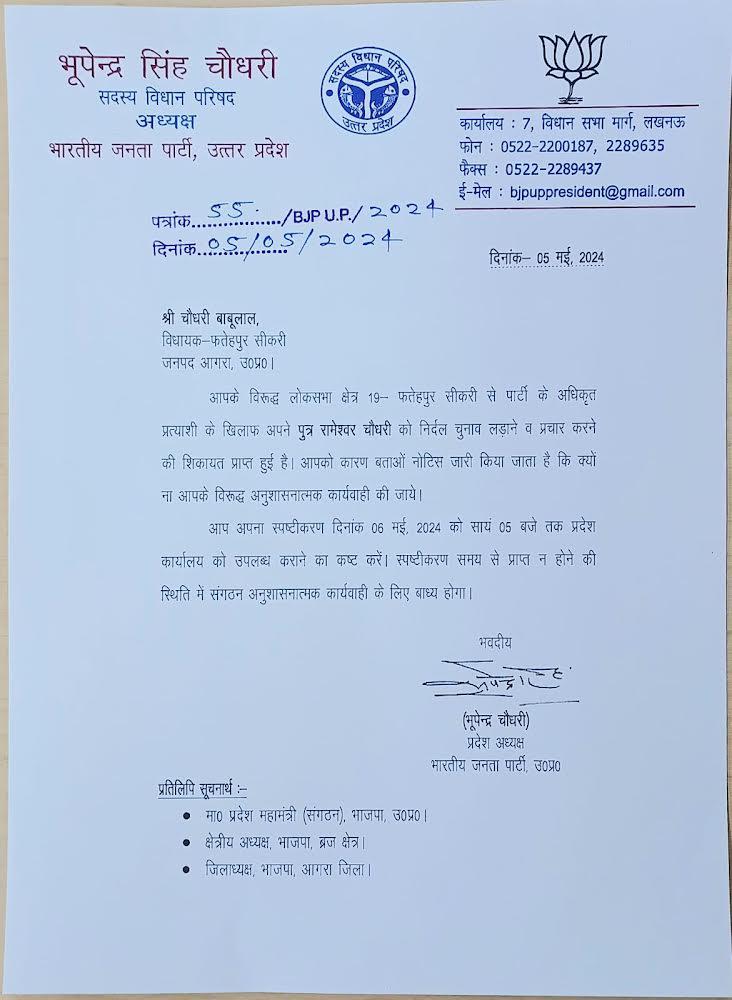 भूपेन्द्र सिंह चौधरी
सदस्य विधान परिषद
अध्यक्ष
भारतीय जनता पार्टी, उत्तर प्रदेश
सदस्य विधान परिषद
उत्तर प्रदेश
कार्यालय : 7, विधान सभा मार्ग, लखनऊ
फोन : 0522-2200187, 2289635
फैक्स : 0522-2289437
ई-मेल : bjpuppresident@gmail.com
पत्रांक...55.../BJP U.P./2024
दिनांक...05/05/2024
दिनांक– 05 मई, 2024
श्री चौधरी बाबूलाल,
विधायक–फतेहपुर सीकरी
जनपद आगरा, उ0प्र0।
आपके विरूद्ध लोकसभा क्षेत्र 19– फतेहपुर सीकरी से पार्टी के अधिकृत
प्रत्याशी के खिलाफ अपने पुत्र रामेश्वर चौधरी को निर्दल चुनाव लड़ाने व प्रचार करने
की शिकायत प्राप्त हुई है। आपको कारण बताओं नोटिस जारी किया जाता है कि क्यों
ना आपके विरूद्ध अनुशासनात्मक कार्यवाही की जाये।
आप अपना स्पष्टीकरण दिनांक 06 मई, 2024 को सायं 05 बजे तक प्रदेश
कार्यालय को उपलब्ध कराने का कष्ट करें। स्पष्टीकरण समय से प्राप्त न होने की
स्थिति में संगठन अनुशासनात्मक कार्यवाही के लिए बाध्य होगा।
भवदीय
(भूपेन्द्र चौधरी)
प्रदेश अध्यक्ष
भारतीय जनता पार्टी, उ0प्र0
प्रतिलिपि सूचनार्थ :–
• मा0 प्रदेश महामंत्री (संगठन), भाजपा, उ0प्र0।
• क्षेत्रीय अध्यक्ष, भाजपा, ब्रज क्षेत्र।
• जिलाध्यक्ष, भाजपा, आगरा जिला।